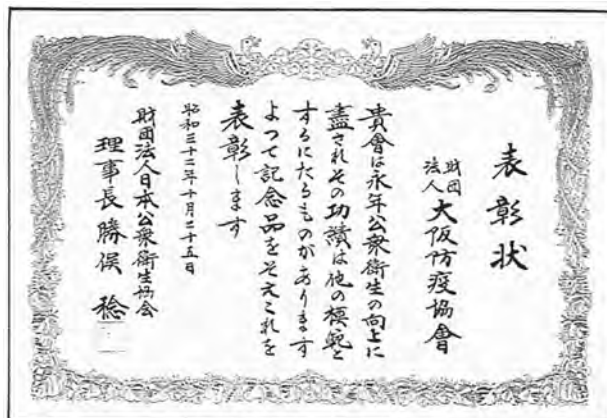 表彰状
財団法人 大阪防疫協會
貴會は永年公衆衛生の向上に
盡されその功績は他の模範と
するにたるものがあります
よつて記念品をそえこれを
表彰します
昭和三十二年十月二十五日
財団法人日本公衆衛生協会
理事長 勝俣 稔